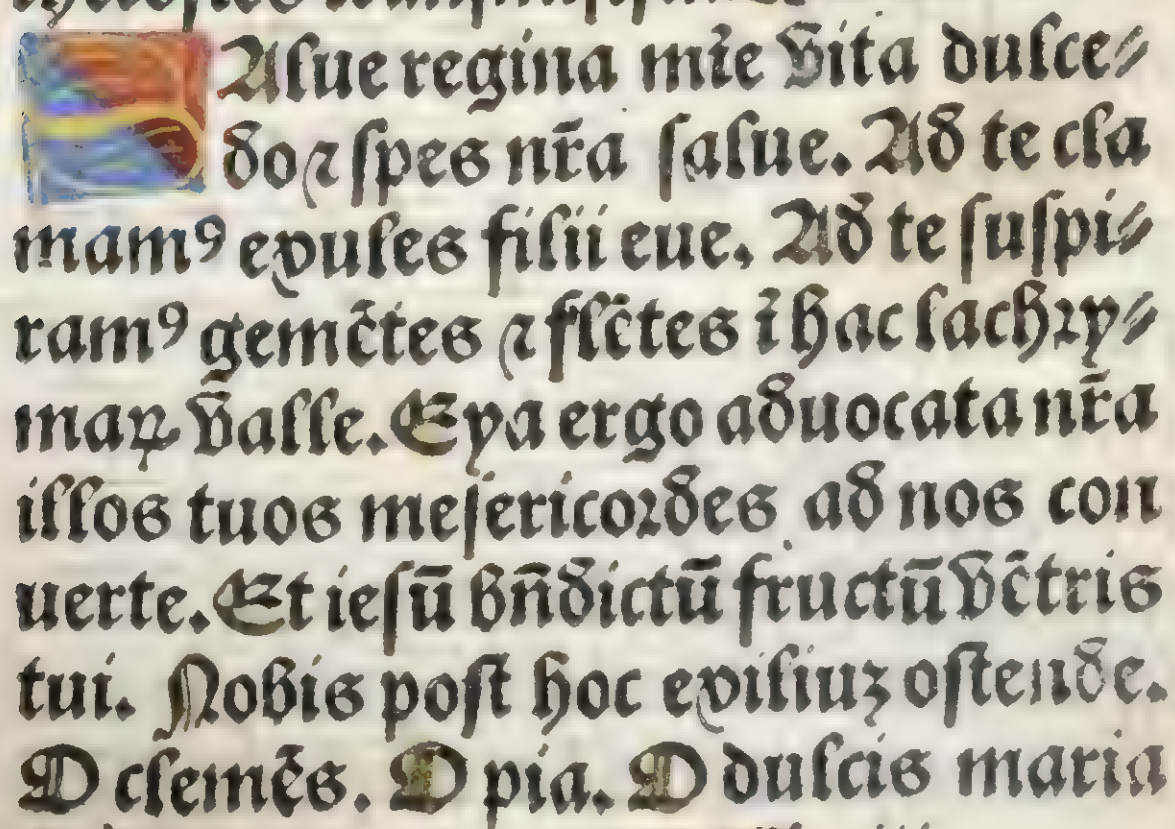 SAlue regina mr̃e vita dulce⸗
do ⁊ spes nr̃a salue. Ad te cla
mamꝰ exules filii eue. Ad te suspi⸗
ramꝰ gemẽtes ⁊ flẽtes ĩ hac lachry⸗
maꝝ valle. Eya ergo aduocata nr̃a
illos tuos mesericordes ad nos con
uerte. Et iesũ bñdictũ fructũ vẽtris
tui. Nobis post hoc exiliuꝫ ostende.
O clemẽs. O pia. O dulcis maria